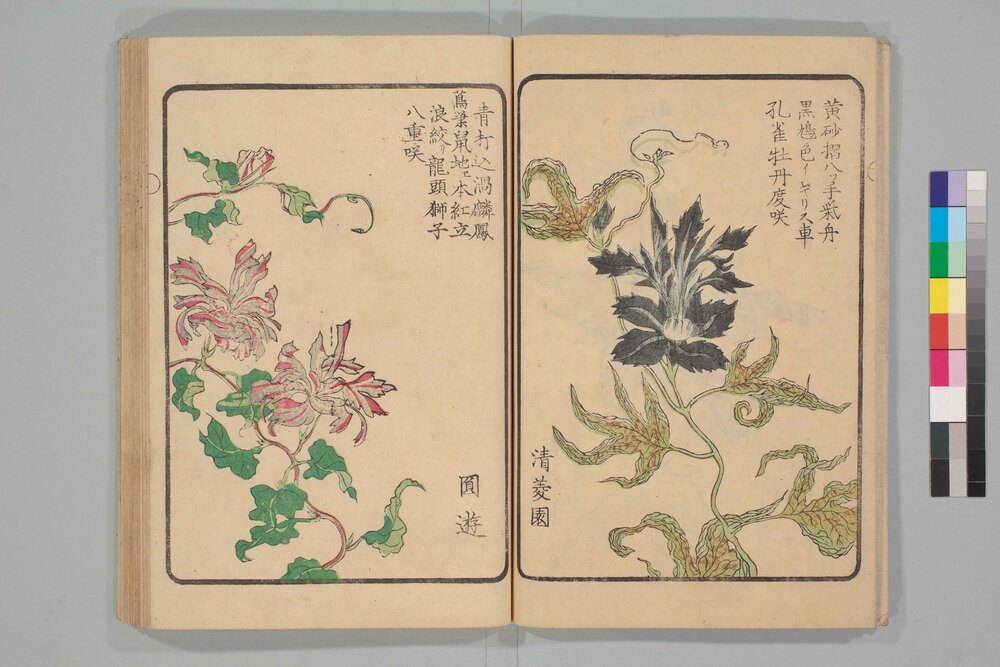 黄砂摺八ッ手葉丹
黒鳩色イギリス車
孔雀牡丹度咲
清菱園
青打込渦麟鳳
蔦葉鼠地エ本紅立
浪絞リ龍頭獅子
八重咲
圓遊